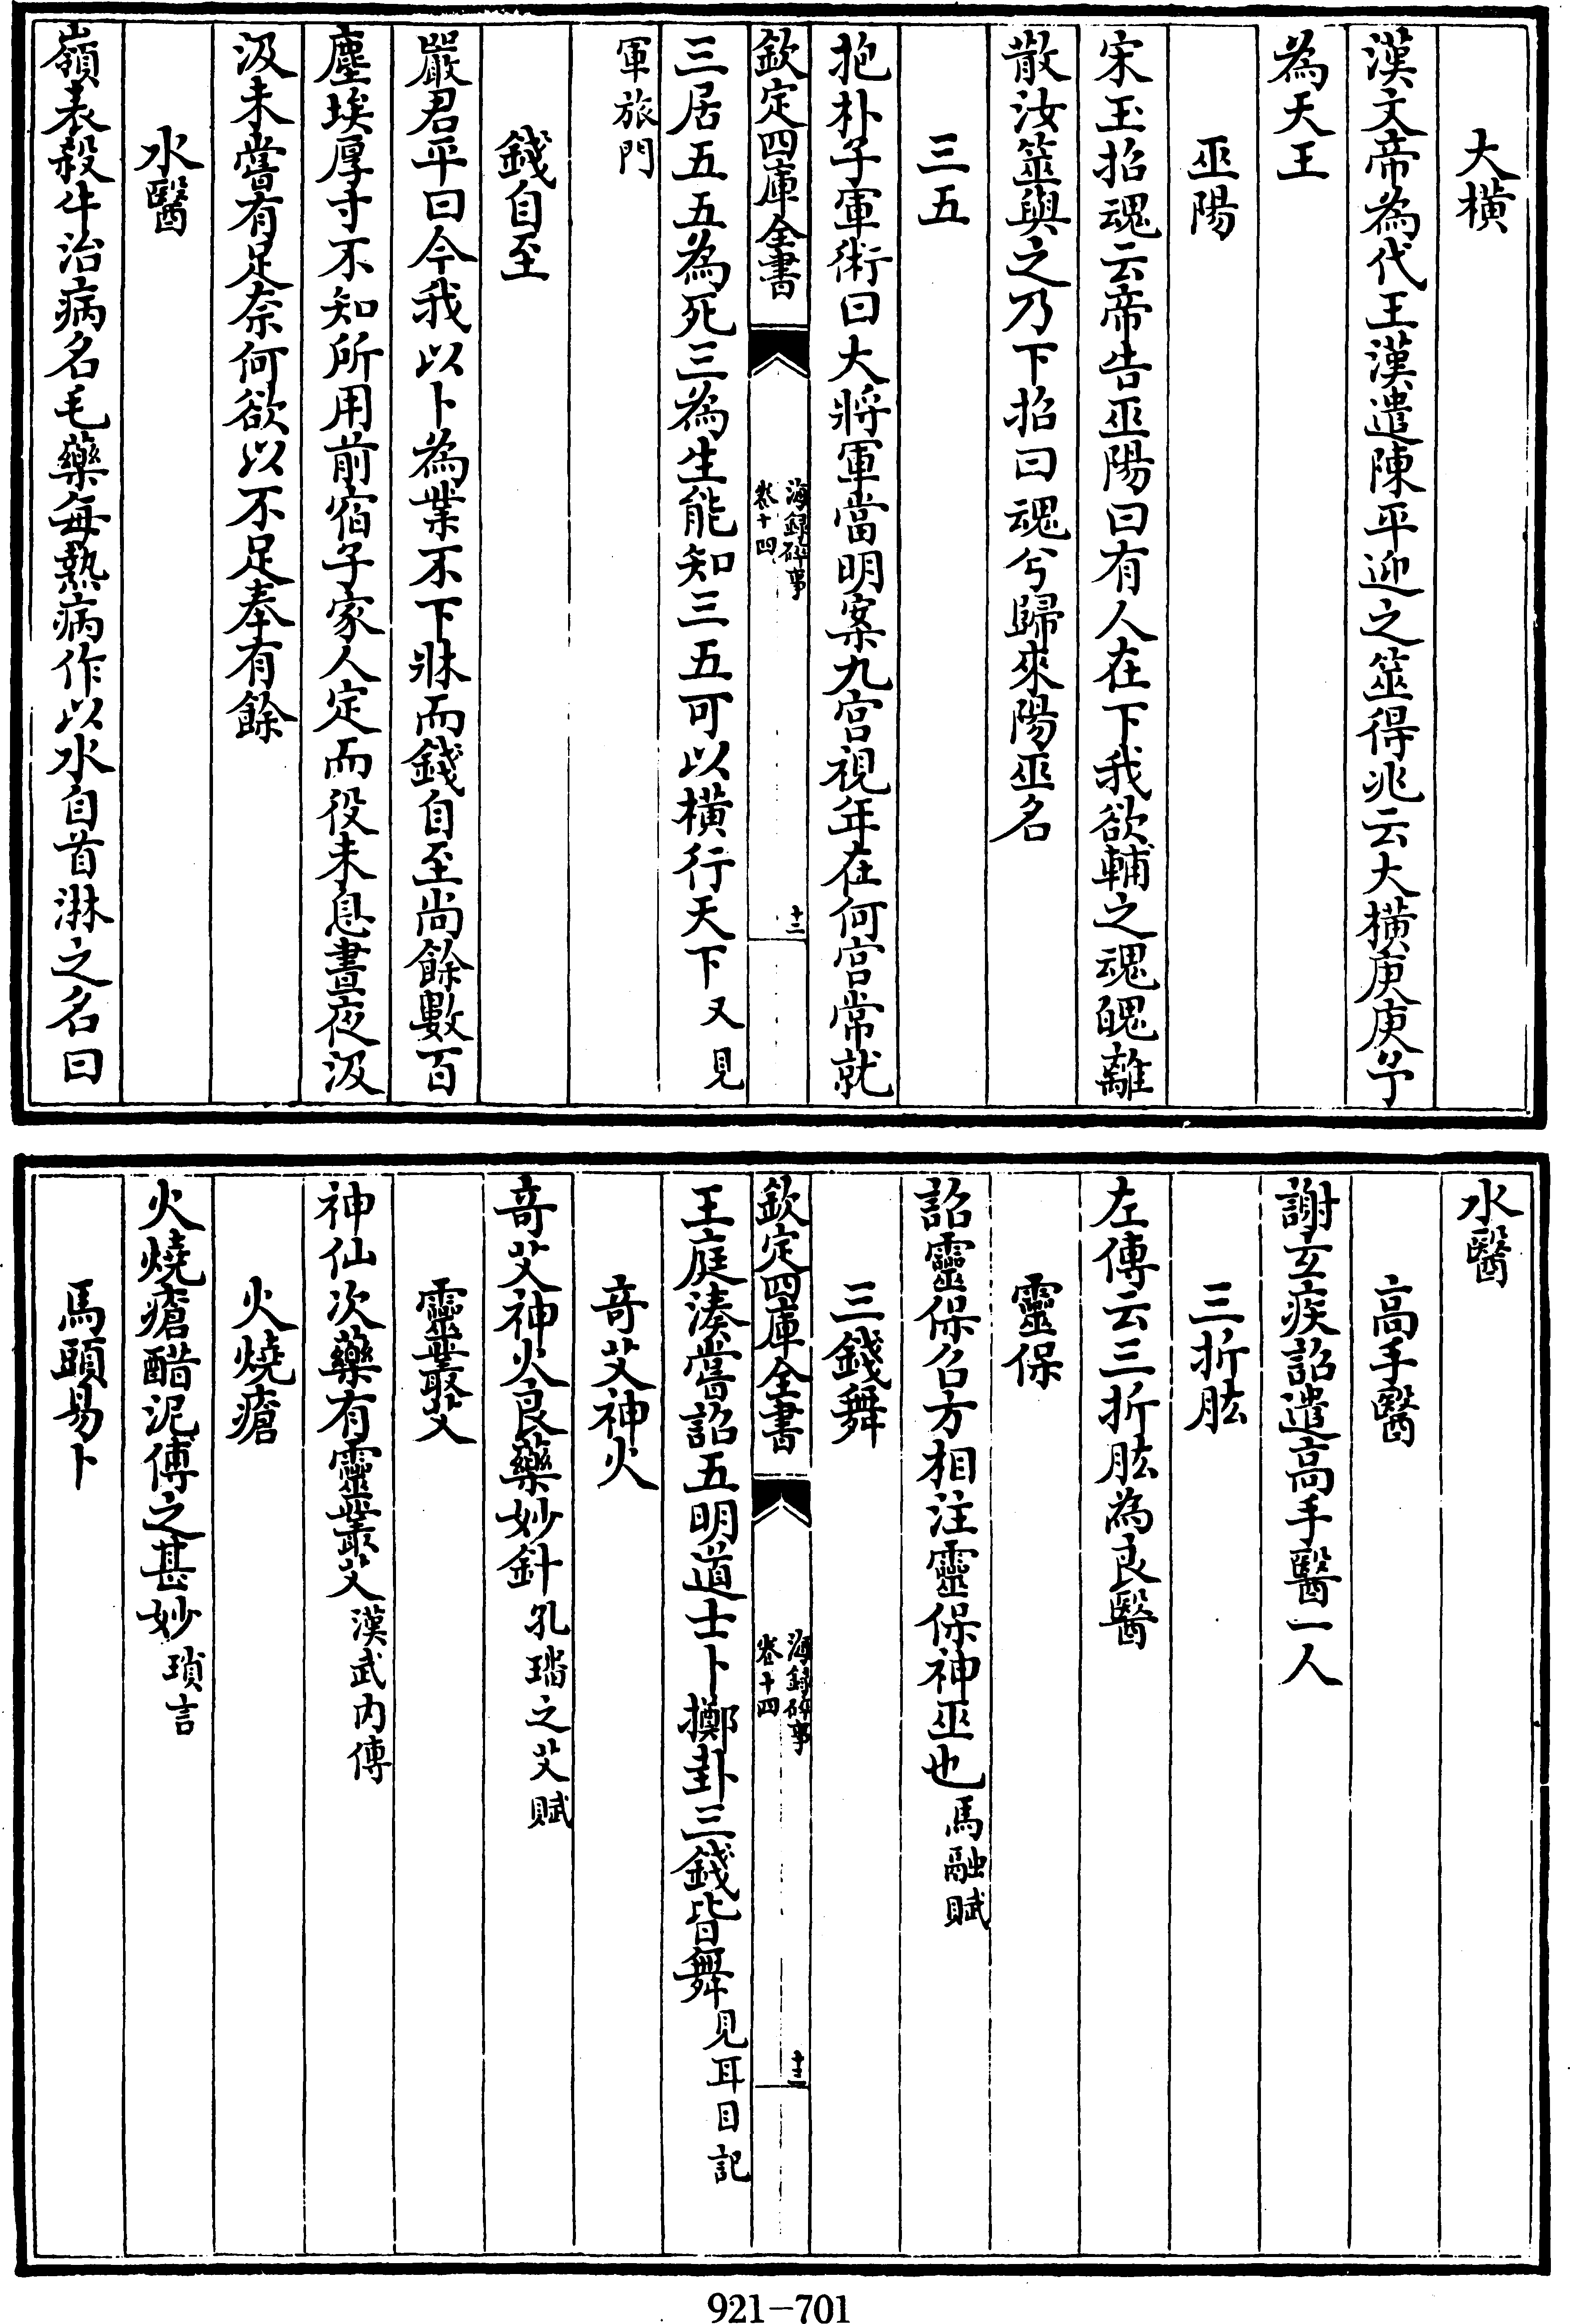 大橫
漢文帝為代王漢遣陳平迎之筮得兆云大橫庚庚予
為天王
巫陽
宋玉招魂云帝告巫陽曰有人在下我欲輔之魂魄離
散汝筮與之乃下招曰魂兮歸來陽巫名
三五
抱朴子軍術曰大將軍當明案九宫視年在何宫常就
欽定四庫全書
海録碎事
卷十四
十二
三居五五為死三為生能知三五可以橫行天下又見
軍旅門
錢自至
嚴君平曰今我以卜為業不下牀而錢自至尚餘數百
塵埃厚寸不知所用前宿子家人定而役未息晝夜汲
汲未嘗有足奈何欲以不足奉有餘
水醫
嶺表殺牛治病名毛藥每熱病作以水自首淋之名曰
水醫
高手醫
謝玄疾詔遣高手醫一人
三折肱
左傳云三折肱為良醫
靈保
詔靈保召方相注靈保神巫也馬融賦
三錢舞
欽定四庫全書
海録碎事
卷十四
十三
王庭湊嘗詔五明道士卜擲卦三錢皆舞見耳目記
竒艾神火
竒艾神火良藥妙針孔璠之艾賦
靈叢艾
神仙次藥有靈叢艾漢武内傳
火燒瘡
火燒瘡醋泥傅之甚妙瑣言
馬頭易卜
921-701